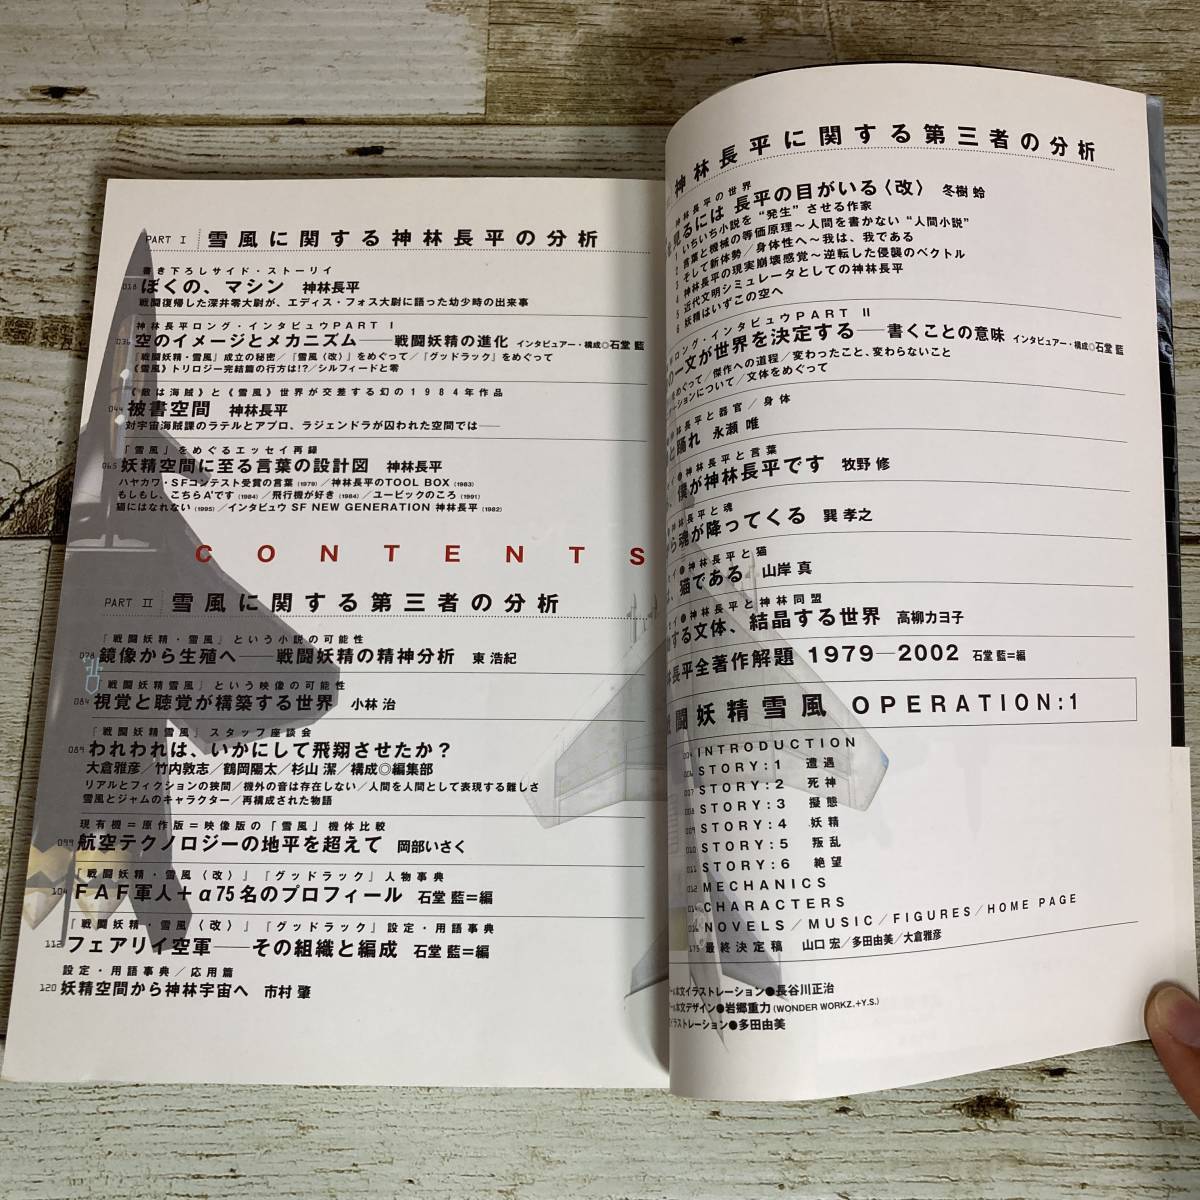 PART Ⅰ 雪風に関する神林長平の分析
書き下ろしサイド・ストーリイ
018 ぼくの、マシン 神林長平
戦闘復帰した深井零大尉が、エディス・フォス大尉に語った幼少時の出来事
神林長平ロング・インタビュウPART Ⅰ
036 空のイメージとメカニズム——戦闘妖精の進化 インタビュアー・構成◎石堂 藍
『戦闘妖精・雪風』成立の秘密／『雪風〈改〉』をめぐって／『グッドラック』をめぐって
《雪風》トリロジー完結篇の行方は!?／シルフィードと零
《敵は海賊》と《雪風》世界が交差する幻の1984年作品
044 被書空間 神林長平
対宇宙海賊課のラテルとアプロ、ラジェンドラが囚われた空間では——
「雪風」をめぐるエッセイ再録
065 妖精空間に至る言葉の設計図 神林長平
ハヤカワ・SFコンテスト受賞の言葉(1979)／神林長平のTOOL BOX(1983)
もしもし、こちらA'です(1984)／飛行機が好き(1984)／ユービックのころ(1991)
猫にはなれない(1995)／インタビュウ SF NEW GENERATION 神林長平(1982)
CONTENTS
PART Ⅱ 雪風に関する第三者の分析
『戦闘妖精・雪風』という小説の可能性
078 鏡像から生殖へ——戦闘妖精の精神分析 東 浩紀
『戦闘妖精雪風』という映像の可能性
084 視覚と聴覚が構築する世界 小林 治
『戦闘妖精雪風』スタッフ座談会
089 われわれは、いかにして飛翔させたか？
大倉雅彦／竹内敦志／鶴岡陽太／杉山 潔／構成◎編集部
リアルとフィクションの狭間／機外の音は存在しない／人間を人間として表現する難しさ
雪風とジャムのキャラクター／再構成された物語
現有機＝原作版＝映像版の「雪風」機体比較
099 航空テクノロジーの地平を超えて 岡部いさく
『戦闘妖精・雪風〈改〉』『グッドラック』人物事典
104 FAF軍人＋α75名のプロフィール 石堂 藍＝編
『戦闘妖精・雪風〈改〉』『グッドラック』設定・用語事典
112 フェアリイ空軍——その組織と編成 石堂 藍＝編
設定・用語事典／応用篇
120 妖精空間から神林宇宙へ 市村 肇
神林長平に関する第三者の分析
神林長平の世界
見るには 長平の目がいる〈改〉 冬樹 蛉
1 いちいち小説を“発生”させる作家
2 言葉と機械の等価原理〜人間を書かない“人間小説”
3 そして新体勢／身体性へ〜我は、我である
4 神林長平の現実崩壊感覚〜逆転した侵襲のベクトル
5 近代文明シミュレータとしての神林長平
6 妖精はいずこの空へ
ロング・インタビュウPART Ⅱ
の一文が世界を決定する——書くことの意味 インタビュアー・構成◎石堂 藍
をめぐって／傑作への道程／変わったこと、変わらないこと
ーションについて／文体をめぐって
神林長平と器官／身体
と踊れ 永瀬 唯
イ●神林長平と言葉
、僕が神林長平です 牧野 修
神林長平と魂
ら魂が降ってくる 巽 孝之
イ●神林長平と猫
は、猫である 山岸 真
セイ●神林長平と神林同盟
する文体、結晶する世界 高柳カヨ子
林長平全著作解題 1979—2002 石堂 藍＝編
戦闘妖精雪風 OPERATION:1
004 INTRODUCTION
006 STORY:1 遭遇
007 STORY:2 死神
008 STORY:3 擬態
009 STORY:4 妖精
010 STORY:5 叛乱
011 STORY:6 絶望
012 MECHANICS
014 CHARACTERS
016 NOVELS／MUSIC／FIGURES／HOME PAGE
175 最終決定稿 山口 宏／多田由美／大倉雅彦
本文イラストレーション●長谷川正治
本文デザイン●岩郷重力(WONDER WORKZ.+Y.S.)
イラストレーション●多田由美